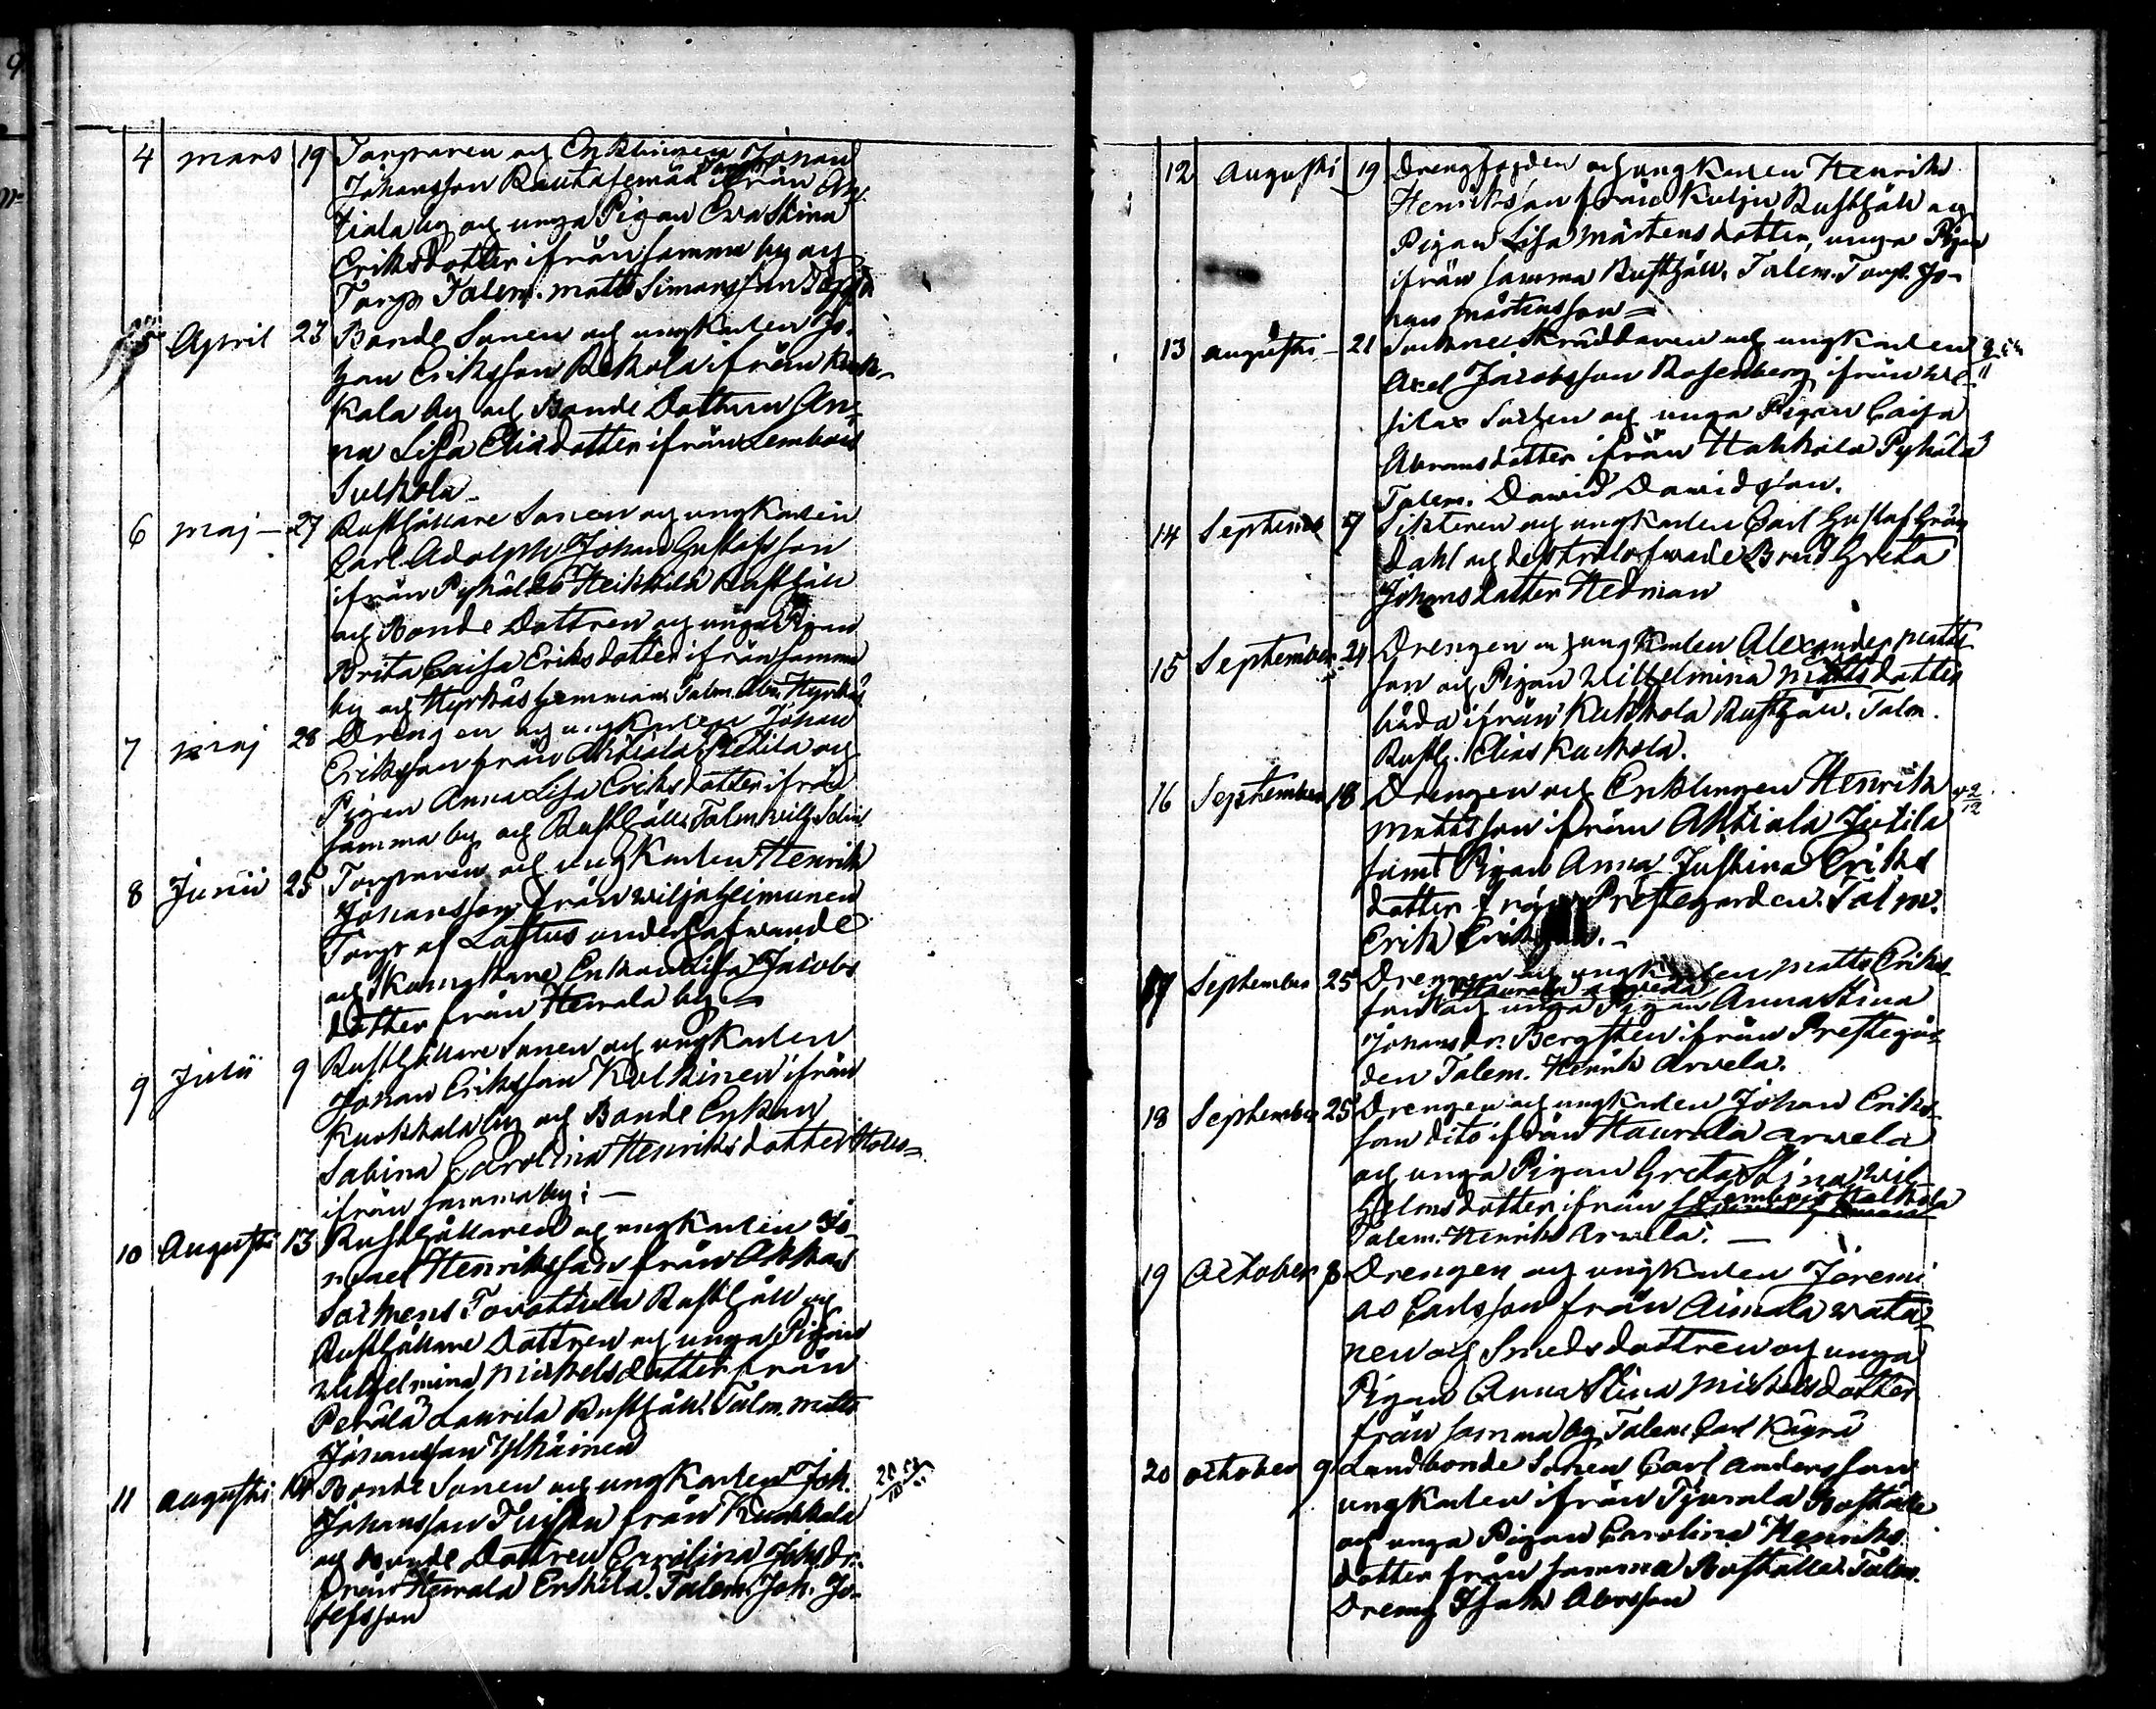 4 mars 19 Torparen och Enklingen Johan
Johansson Rautasemäe ifrån Ah-
tiala by och unga Pigan Eva Stina
Eriksdotter ifrån samma by och
Torp Talem. Matts Simonsson
5 April 23 Bonde Sonen och ungkarlen Jo-
han Eriksson Rekola ifrån Kuok-
kala by och Bonde Dottren An-
na Lisa Eliædotter ifrån Lembois
Sulkola
6 maj — 27 Rusthållare Sonen och ungkarlen
Carl Adolph Johan Gustafsson
ifrån Pyhäldö Heikkilä Rusthåll
och Bonde Dottren och unga Pigan
Brita Caisa Eriksdotter ifrån samma
by och Hyrkäs hemman. Talm. Abr. Hyrkäs
7 maj 28 Drengen och ungkarlen Johan
Eriksson från Ahtiala Pietilä och
Pigan Anna Lisa Eriksdotter ifrån
samma by och Rusthåll. Talm. Wilh.
8 Junii 25 Torparen och ungkarlen Henrik
Johansson från Wiljaheimunen
Torp af Laftus underhafwande
och Enkan Lisa Jacobs
dotter från Herrala by
9 Julii 9 Rusthållare Sonen och ungkarlen
Johan Eriksson Kulkinen ifrån
Kuokkala by och Bonde Enkan
Sabina Carolina Henriksdotter
ifrån samma by: —
10 Augusti 13 Rusthållaren och ungkarlen
Henriksson från Akkas
Socknens Tovottula Rusthåll och
Rusthållare Dottren och unga Pigan
Wilhelmina Mickelsdotter från
Perälä Laurila Rusthåll. Talm. Matts
Johansson Ylhäinen
11 augusti 14 Bonde Sonen och ungkarlen Joh.
Johansson från Kuokkala
och Bonde Dottren Carolina Johs.dr.
från Herrala Erkilä. Talem. Joh. Jo-
sefsson
12 Augusti 19 Drengfogden och ungkarlen Henrik
Henriksson från Kulju Rusthåll och
Pigan Lisa Mårtensdotter, unga Pigan
ifrån samma Rusthåll. Talem. Torp. Jo-
han Mårtensson =
13 augusti — 21 Sockne Skräddaren och ungkarlen
Axel Jacobsson Rosenberg ifrån We-
silax Socken och unga Pigan Caisa
Abramsdotter ifrån Hakkila Pyhälä
Talem. Dawid Dawidsson.
14 September 7 Sikteren och ungkarlen Carl Gustaf Grön
dahl och dess trolofwade Brud Greta
Johansdotter Hedman
15 September 24 Drengen och ungkarlen Alexander Matts
son och Pigan Willhelmina Mattsdotter
båda ifrån Kukkola Rusthåll. Talm.
Rusth. Elias Kuckola.
16 September 18 Drengen och Enklingen Henrik
Mattsson ifrån Ahtiala Jutila
samt Pigan Anna Justina Eriks
dotter från Prestegården. Talm.
Erik Eriksson. —
17 September 25 Drengen och ungkarlen Matts Eriks-
son ifrån Haurala Arvela
och unga Pigan Anna Stina
Johansdr. Bergsten ifrån Prestegår-
den Talem. Henrik Arvela.
18 September 25 Drengen och ungkarlen Johan Eriks-
son dito ifrån Haurala Arvela
och unga Pigan Greta Stina Wil-
helmsdotter ifrån Lembois
Talem. Henrik Arvela. —
19 October 8 Drengen och ungkarlen Jeremi
as Carlsson från Aimala Wata
nen och Smedsdottren och unga
Pigan Anna Stina Mickelsdotter
från samma by. Talem. Carl Käyrä
20 october 9 Landbonde Sonen Carl Andersson
ungkarlen ifrån Tjurala Boställe
och unga Pigan Carolina Henriks
dotter från samma Boställe. Talm.
Dreng Isak Abrsson